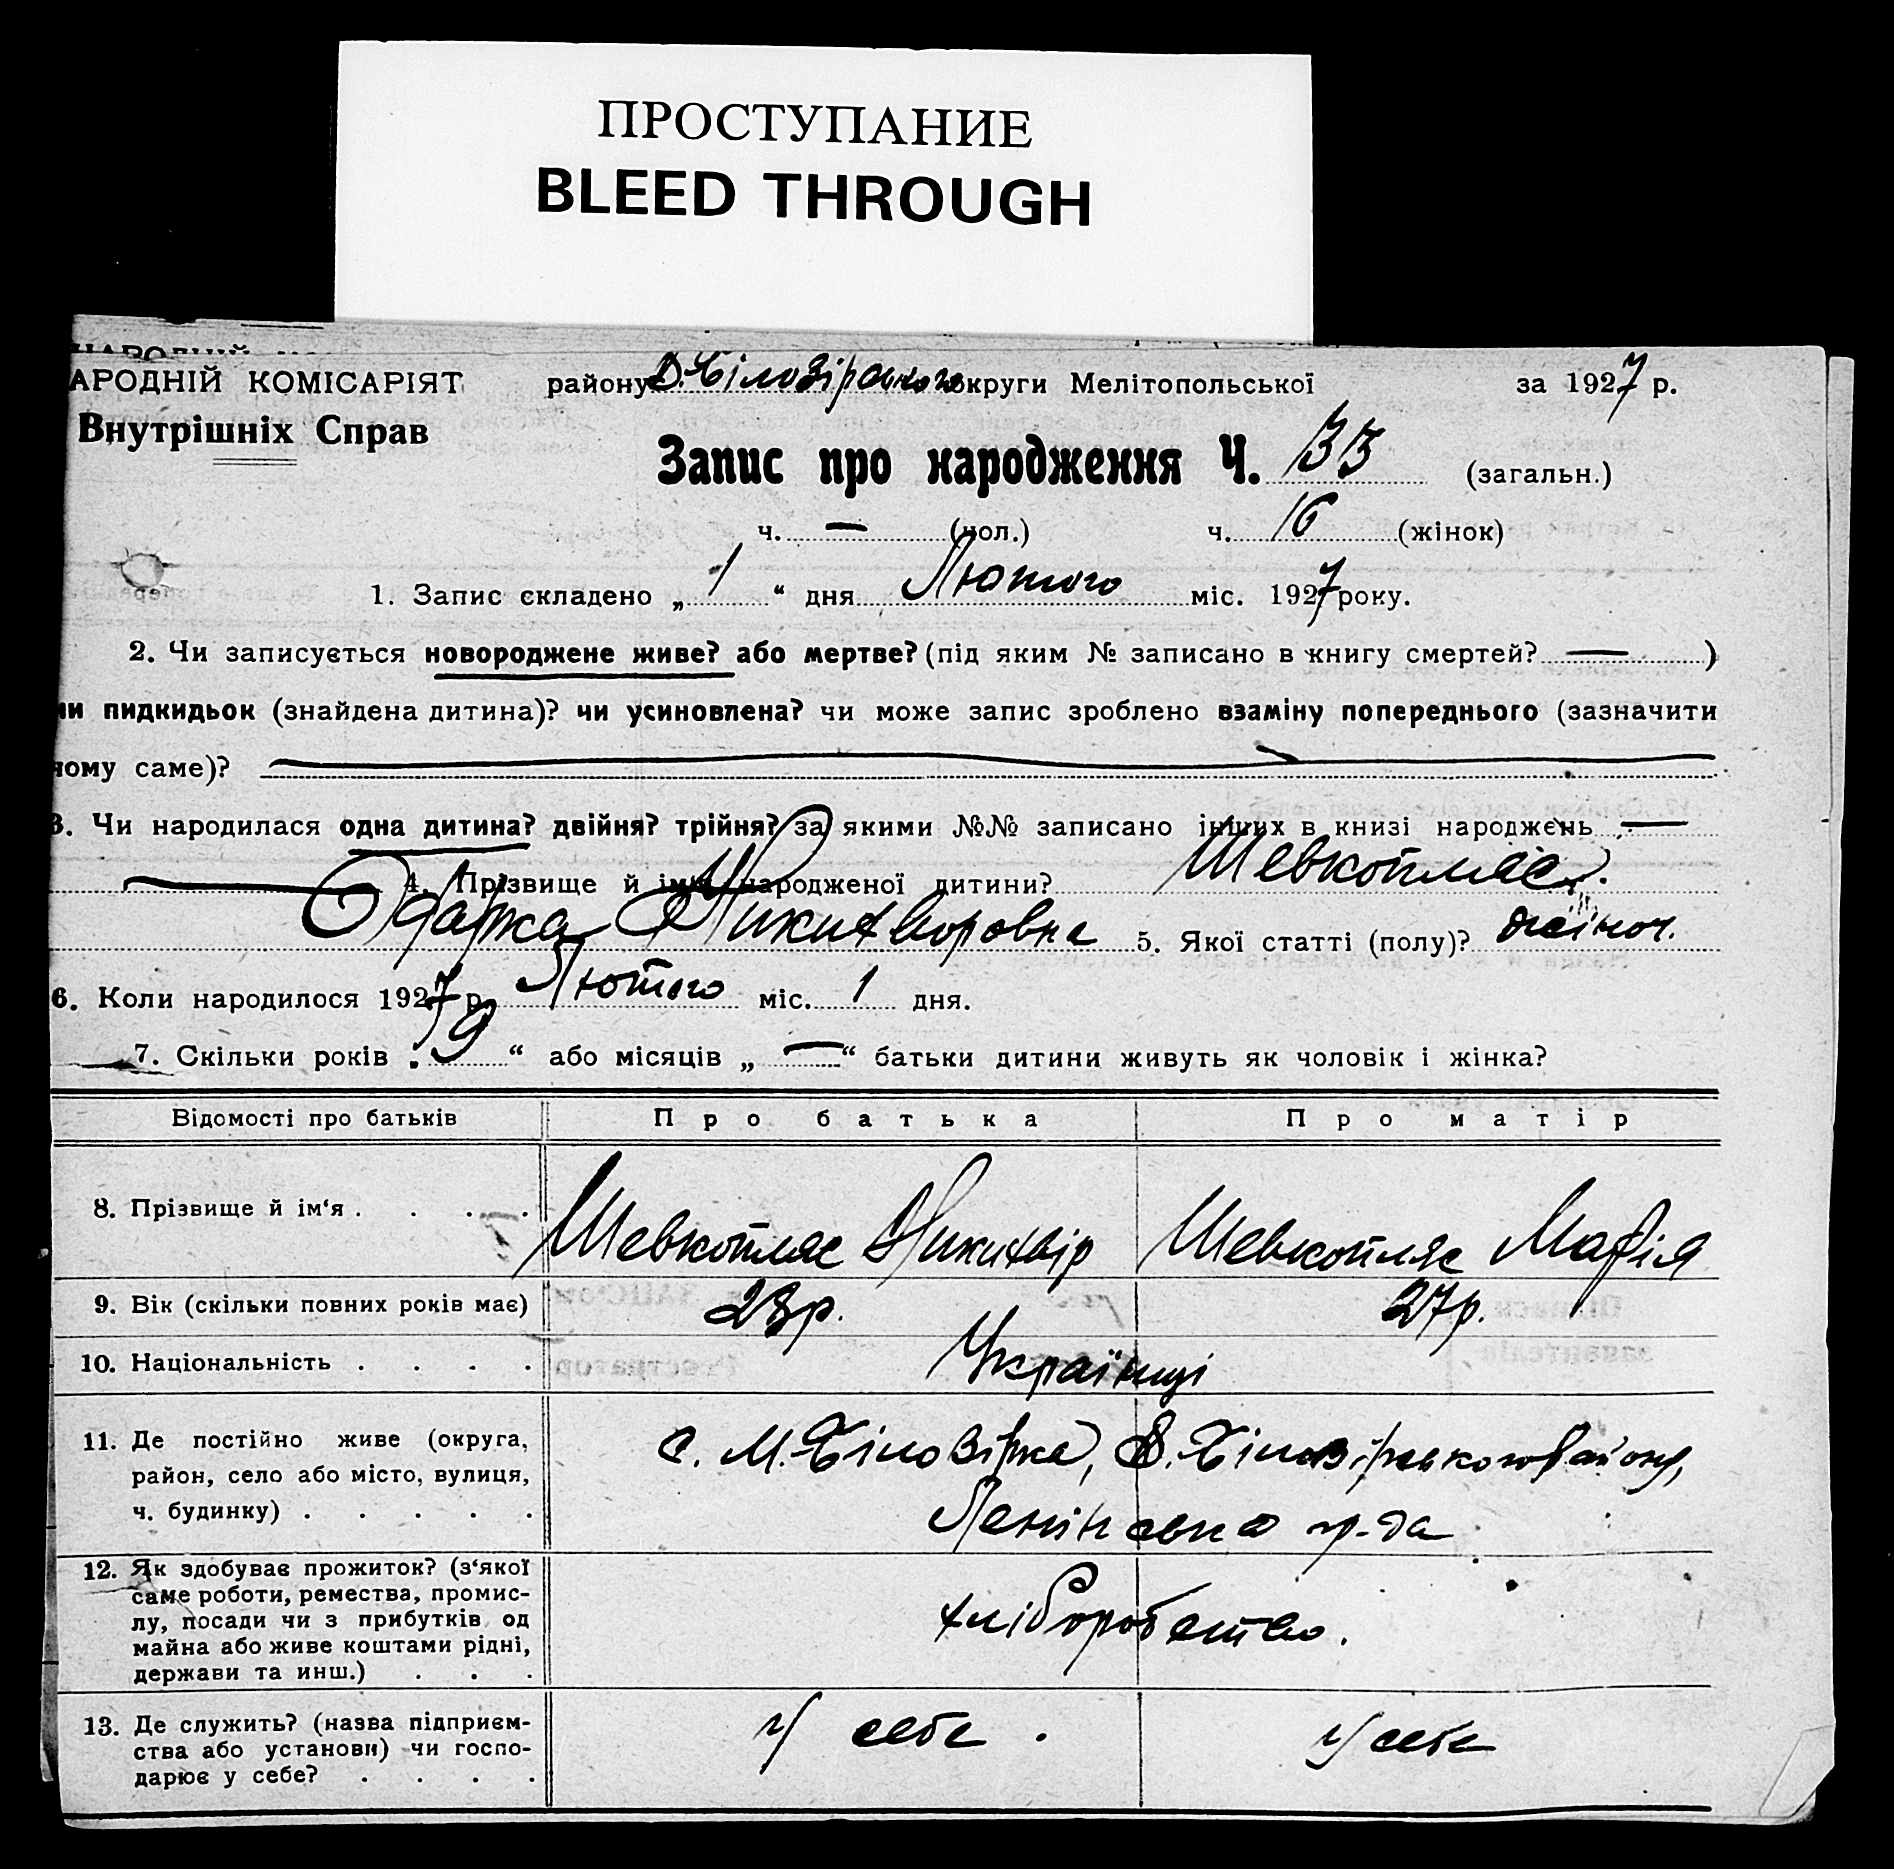 ПРОСТУПАНИЕ
BLEED THROUGH
АРОДНІЙ КОМІСАРІЯТ району Д. Білозірського округи Мелітопольської за 1927 р.
Внутрішніх Справ
Запис про народження Ч. 33 (загальн.)
ч. — (чол.) ч. 16 (жінок)
1. Запис складено „ 1 “ дня Лютого міс. 1927 року.
2. Чи записується новороджене живе? або мертве? (під яким № записано в книгу смертей? — )
чи пидкидьок (знайдена дитина)? чи усиновлена? чи може запис зроблено взаміну попереднього (зазначити
чому саме)?
3. Чи народилася одна дитина? двійня? трійня? за якими №№ записано інших в книзі народжень —
4. Прізвище й ім'я народженої дитини? Шевкопляс
Одарка Никихворовна 5. Якої статті (полу)? жіноч.
6. Коли народилося 1927 р. Лютого міс. 1 дня.
7. Скільки років „ 9 “ або місяців „ — “ батьки дитини живуть як чоловік і жінка?
Відомості про батьків Про батька Про матір
8. Прізвище й ім‘я . . . . Шевкопляс Никихвір Шевкопляс Марія
9. Вік (скільки повних років має) 28р. 27р.
10. Національність . . . . Українці
11. Де постійно живе (округа,
район, село або місто, вулиця,
ч. будинку) . . . . .
с. М. Білозірка, Д. Білозірського району,
12. Як здобуває прожиток? (з‘якої
саме роботи, ремества, промис-
лу, посади чи з прибутків од
майна або живе коштами рідні,
держави та инш.) . . .
хліборобство.
13. Де служить? (назва підприєм-
ства або установи) чи госпо-
дарює у себе? . . . .
у себе . у себе